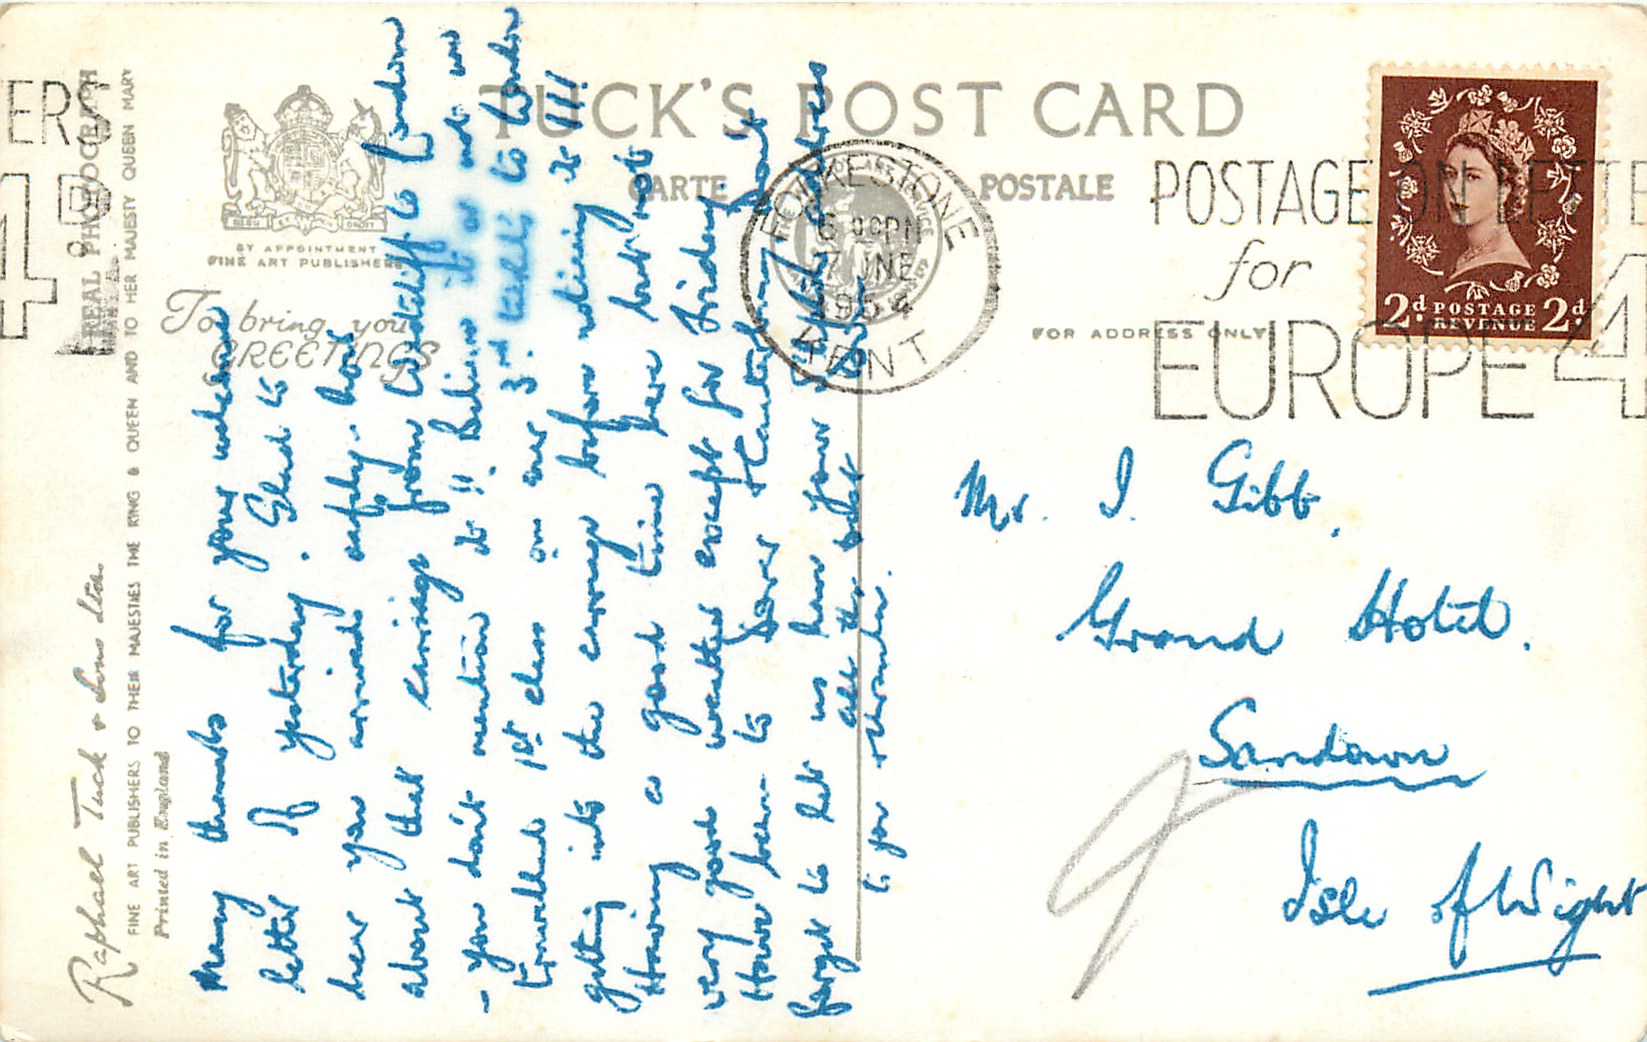 TUCK'S POST CARD
CARTE POSTALE
BY APPOINTMENT
FINE ART PUBLISHERS
To bring you
GREETINGS
FOR ADDRESS ONLY
REAL PHOTOGRAPH
Raphael Tuck & Sons Ltd.
FINE ART PUBLISHERS TO THEIR MAJESTIES THE KING & QUEEN AND TO HER MAJESTY QUEEN MARY
Printed in England
FOLKESTONE
KENT
6 PM
7 JNE
1954
POSTAGE ON LETTE
for
EUROPE 4
ERS
4D
2d POSTAGE 2d
REVENUE
Many thanks for your welcome
letter of yesterday. Glad to
hear you arrived safely. How
about that carriage from Cardiff to London
- you don't mention it!! Believe it or not we
travelled 1st class on our 3rd tickets to London
getting into the carriage before noticing it!!!
Having a good time here but not
very good weather except for Friday
Have been to Dover & Canterbury Don't
forget to let us have your address
all the best
to you
Mr. I. Gibb,
Grand Hotel.
Sandown
Isle of Wight